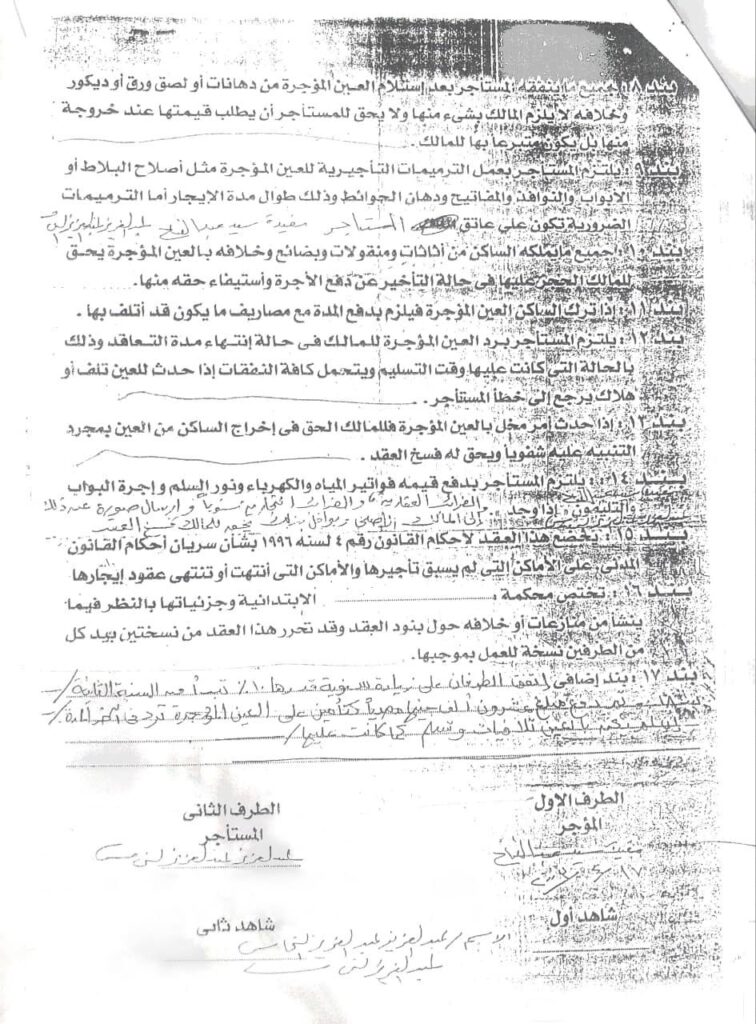 بند ٨ : جميع ما ينفقه المستأجر بعد إستلام العين المؤجرة من دهانات أو لصق ورق أو ديكور
وخلافه لا يلزم المالك بشىء منها ولا يحق للمستأجر أن يطلب قيمتها عند خروجة
منها بل يكون متبرعا بها للمالك .
بند ٩ : يلتزم المستأجر بعمل الترميمات التأجيرية للعين المؤجرة مثل أصلاح البلاط أو
الابواب والنوافذ والمفاتيح ودهان الحوائط وذلك طوال مدة الايجار أما الترميمات
الضرورية تكون على عاتق المستأجر
بند ١٠ : جميع ما يملكه الساكن من أثاثات ومنقولات وبضائع وخلافه بالعين المؤجرة يحق
للمالك الحجز عليها فى حالة التأخير عن دفع الأجرة وأستيفاء حقه منها.
بند ١١ : إذا ترك الساكن العين المؤجرة فيلزم بدفع المدة مع مصاريف ما يكون قد أتلف بها .
بند ١٢ : يلتزم المستأجر برد العين المؤجرة للمالك فى حالة إنتهاء مدة التعاقد وذلك
بالحالة التى كانت عليها وقت التسليم ويتحمل كافة النفقات إذا حدث للعين تلف أو
هلاك يرجع إلى خطأ المستأجر . .
بند ١٣ : إذا حدث أمر مخل بالعين المؤجرة فللمالك الحق فى إخراج الساكن من العين بمجرد
التنبيه عليه شفوياً ويحق له فسخ العقد .
بند ١٤ : يلتزم المستأجر بدفع قيمه فواتير المياه والكهرباء ونور السلم و إجرة البواب
والتليفون إذا وجد . والضرائب العقارية والضرائب التجارية سنوياً وإرسال صورة
إلى المالك للمالك فسخ العقد
بند ١٥ : يخضع هذا العقد لأحكام القانون رقم ٤ لسنه ١٩٩٦ بشأن سريان أحكام القانون
المدنى على الأماكن التى لم يسبق تأجيرها والأماكن التى أنتهت أو تنتهى عقود إيجارها
بند ١٦ : تختص محكمة : الإبتدانية وجزئياتها بالنظر فيما
ينشأ من منازعات أو خلافه حول بنود العقد وقد تحرر هذا العقد من نسختين بيد كل
من الطرفين نسخة للعمل بموجبها.
بند ١٧ : بند إضافى إتفق الطرفان على زيادة سنوية قدرها ١٠٪ تبدأ من السنة الثانية
دفع مبلغ عشرون ألف جنيها مصرياً كتأمين على العين المؤجرة ترد فى آخر المدة
إذا لم يكن بالعين تلافيات وتسلم كما كانت عليها
الطرف الاول
الطرف الثانى
المؤجر
المستأجر
شاهد أول
شاهد ثانى
الاسم / عبد العزيز عبد العزيز